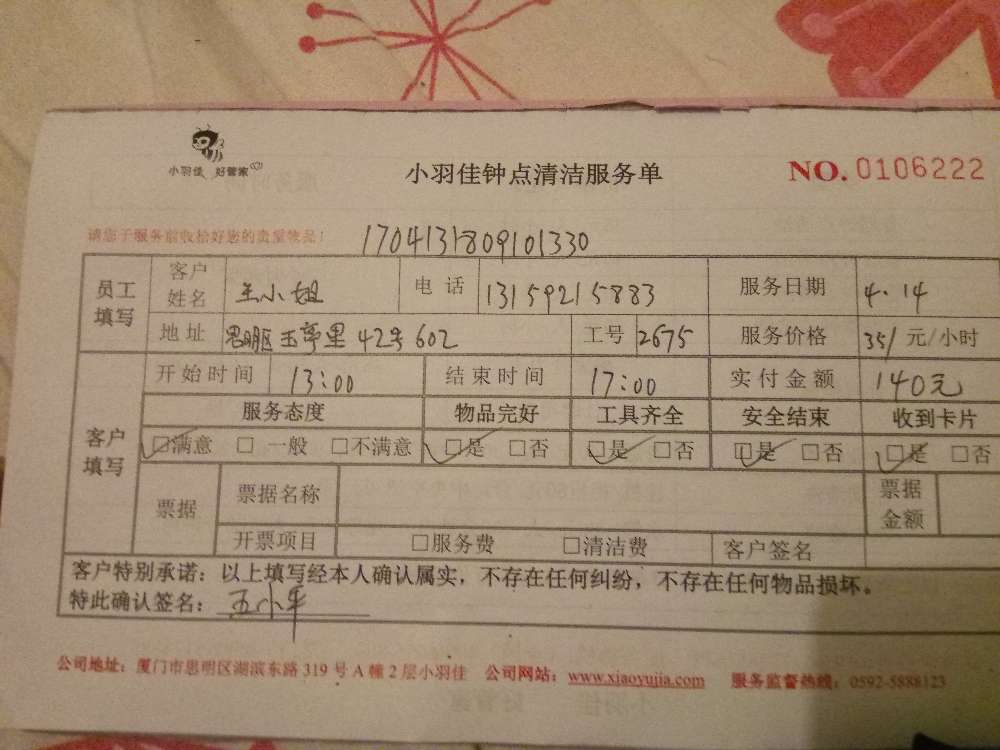 小羽佳 好管家
小羽佳钟点清洁服务单
NO. 0106222
请您于服务前收拾好您的贵重物品！
1704131809101330
员工填写
客户姓名 王小姐 电话 13159215883 服务日期 4.14
地址 思明区玉亭里42号602 工号 2675 服务价格 35/元/小时
客户填写
开始时间 13:00 结束时间 17:00 实付金额 140元
服务态度 物品完好 工具齐全 安全结束 收到卡片
☑满意 □一般 □不满意 ☑是 □否 ☑是 □否 ☑是 □否 ☑是 □否
票据 票据名称 票据金额
开票项目 □服务费 □清洁费 客户签名
客户特别承诺：以上填写经本人确认属实，不存在任何纠纷，不存在任何物品损坏。
特此确认签名：王小平
公司地址：厦门市思明区湖滨东路319号A幢2层小羽佳 公司网站：www.xiaoyujia.com 服务监督热线：0592-5888123